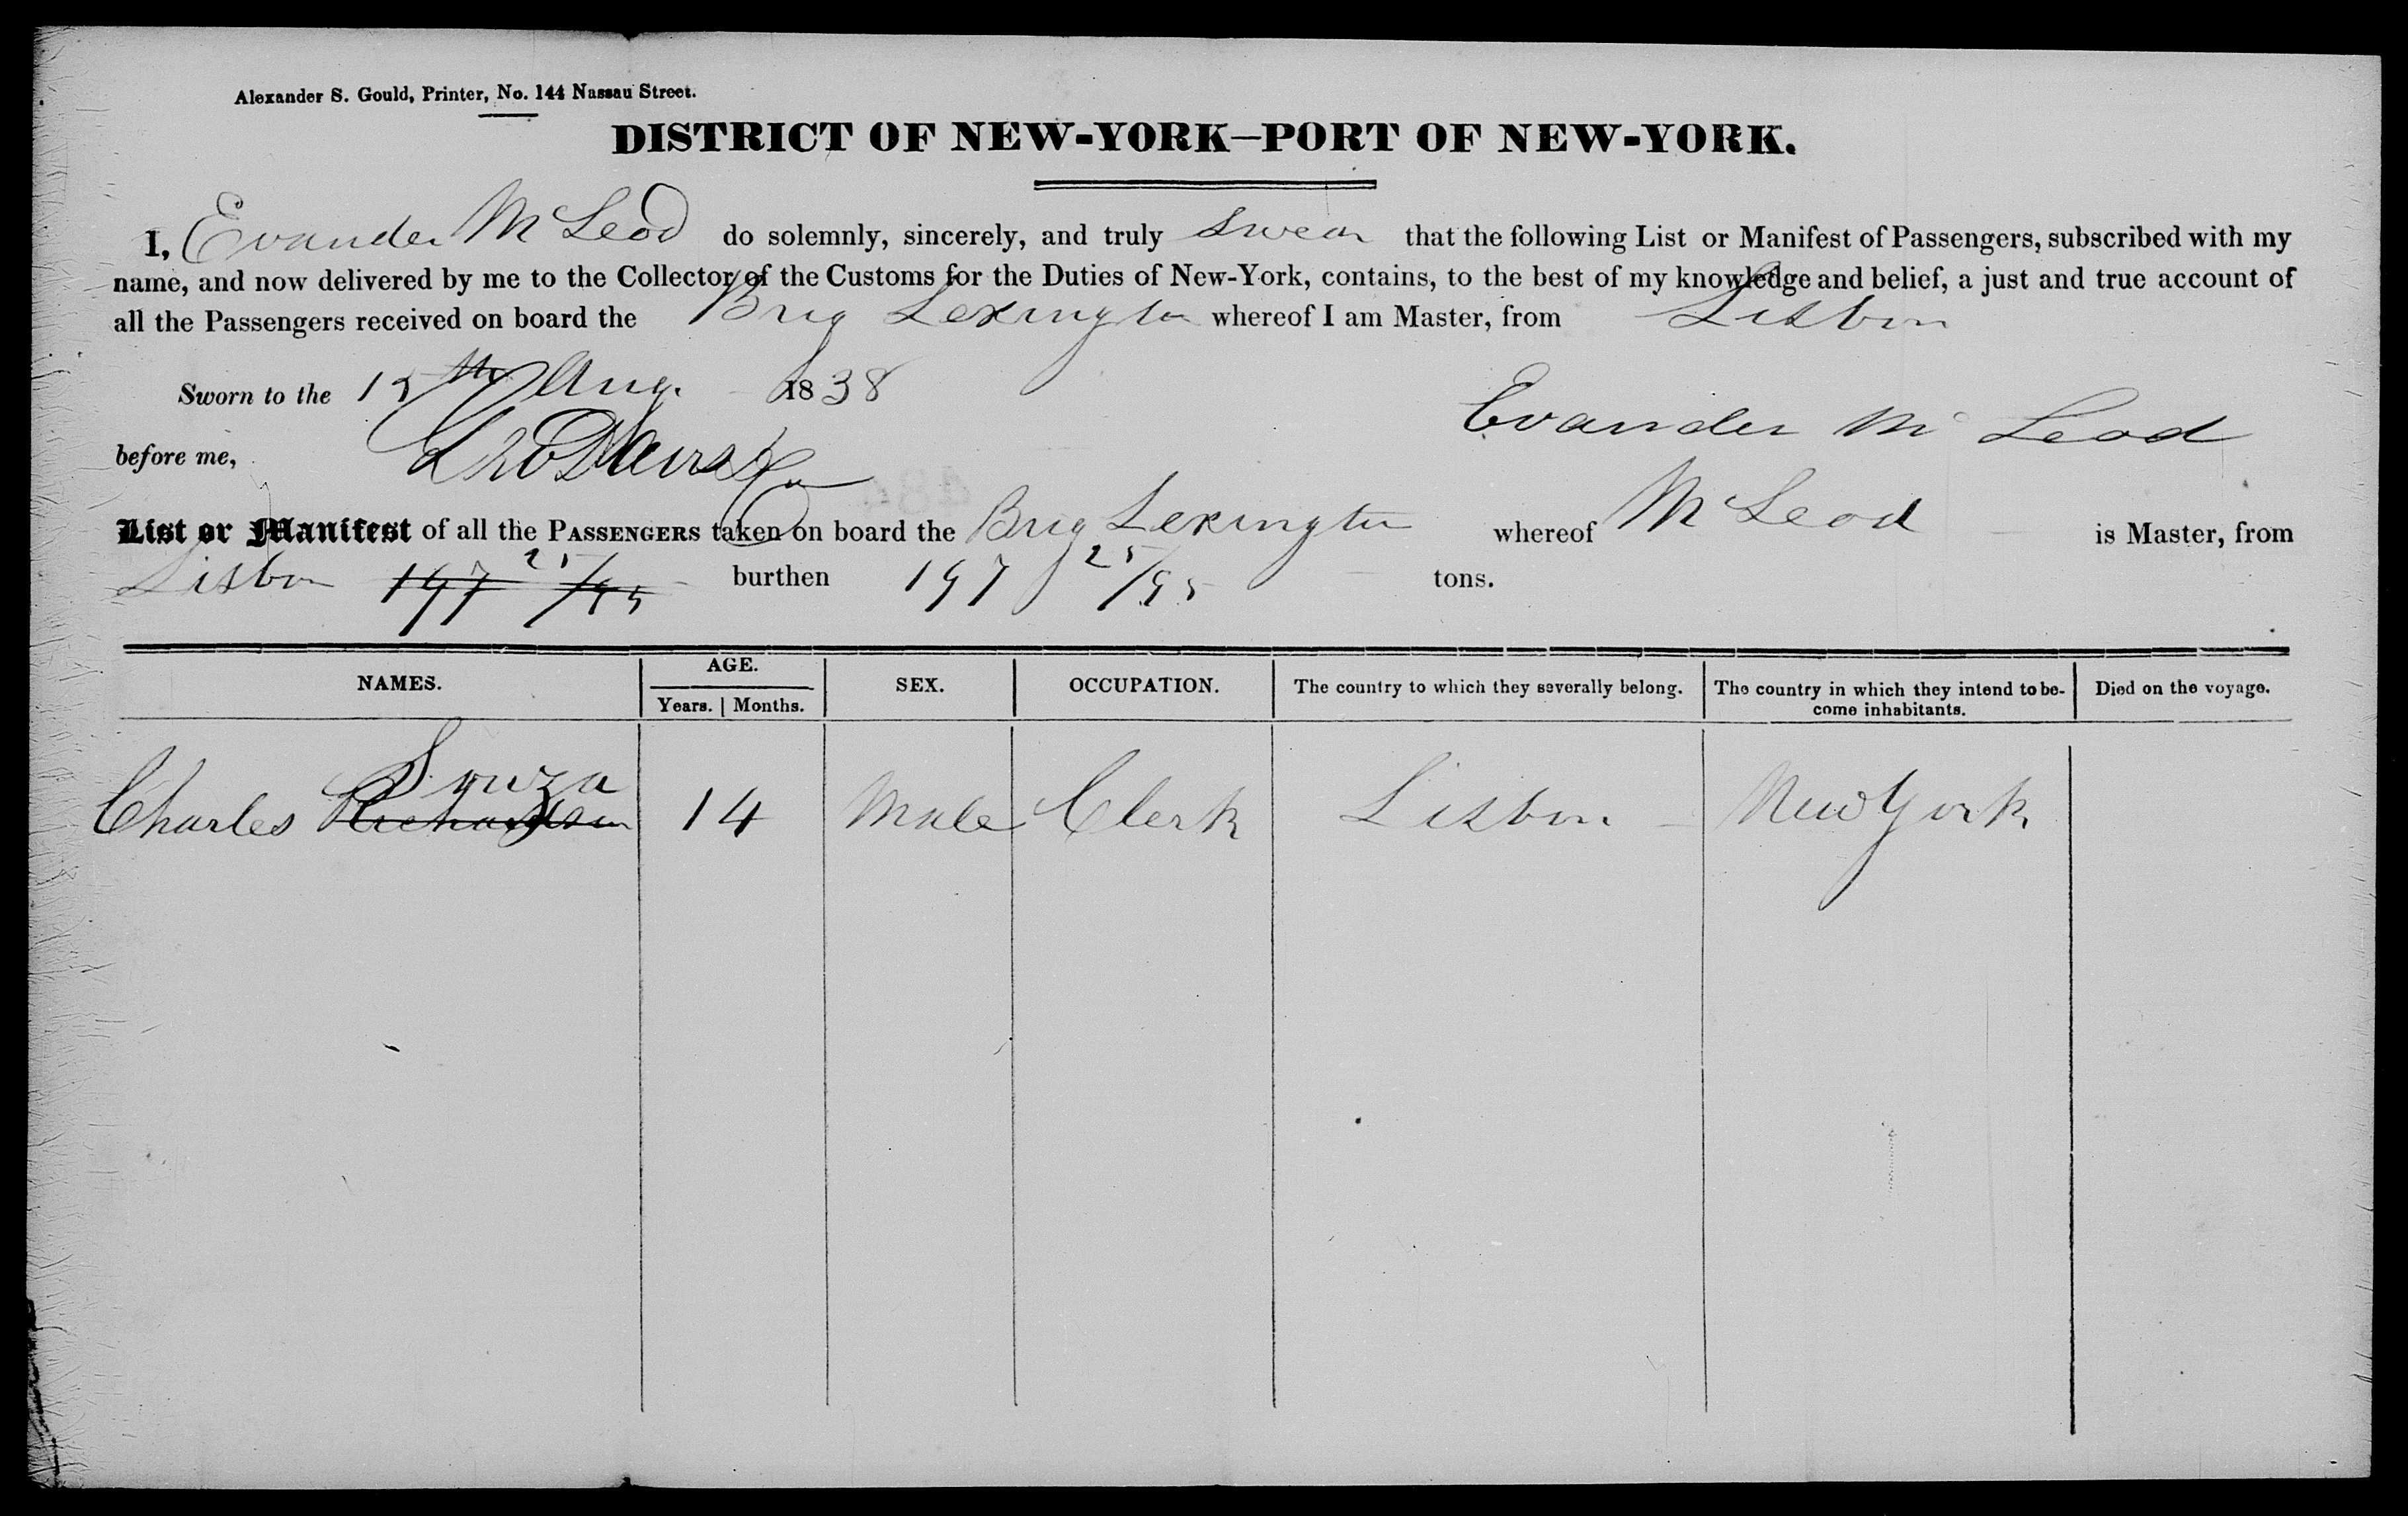 Alexander S. Gould, Printer, No. 144 Nassau Street.
DISTRICT OF NEW-YORK—PORT OF NEW-YORK.
I, Evander Mc Leod do solemnly, sincerely, and truly swear that the following List or Manifest of Passengers, subscribed with my
name, and now delivered by me to the Collector of the Customs for the Duties of New-York, contains, to the best of my knowledge and belief, a just and true account of
all the Passengers received on board the Brig Lexington whereof I am Master, from Lisbon
Sworn to the 15th Aug. 1838
Evander Mc Leod
before me,
List or Manifest of all the PASSENGERS taken on board the Brig Lexington whereof Mc Leod is Master, from
Lisbon 197 25/95 burthen 197 25/95 tons.
NAMES. AGE. SEX. OCCUPATION. The country to which they severally belong. The country in which they intend to be-
come inhabitants. Died on the voyage.
Years. | Months.
Souza
Charles Richardson 14 Male Clerk Lisbon New York